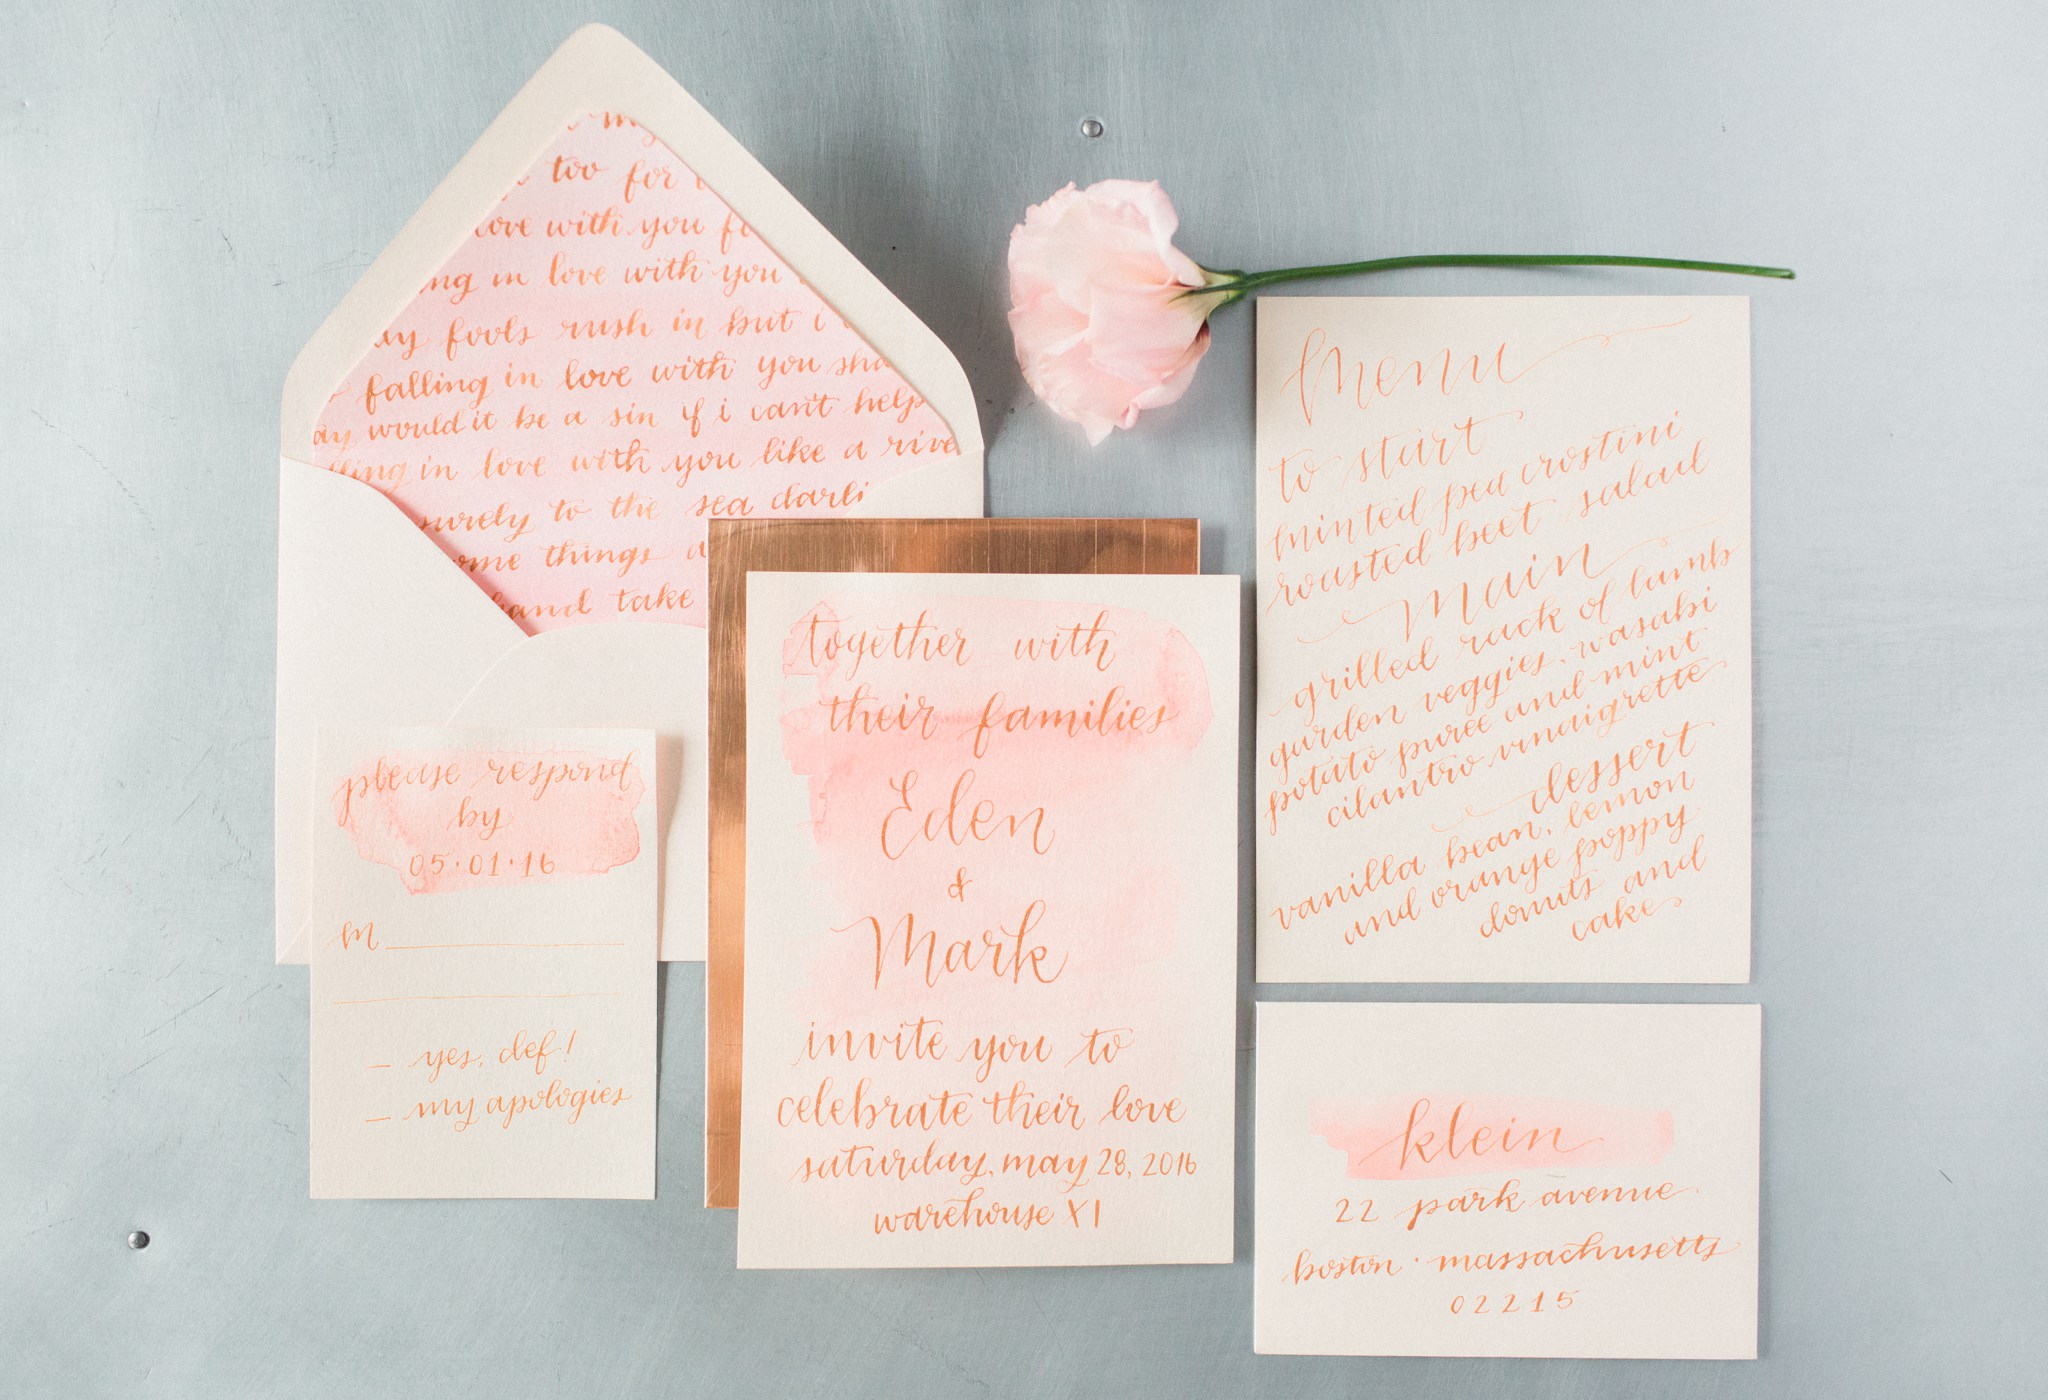 too for
love with you
in love with you
fools rush in but i
falling in love with you sha
would it be a sin if i can't help
in love with you like a rive
surely to the sea darli
some things a
hand take
together with
their families
Eden
&
Mark
invite you to
celebrate their love
saturday, may 28, 2016
warehouse XI
please respond
by
05·01·16
M
yes, def!
my apologies
Menu
to start
minted pea crostini
roasted beet salad
main
grilled rack of lamb
garden veggies, wasabi
potato puree and mint
cilantro vinaigrette
dessert
vanilla bean, lemon
and orange poppy
donuts and
cake
klein
22 park avenue
boston · massachusetts
02215